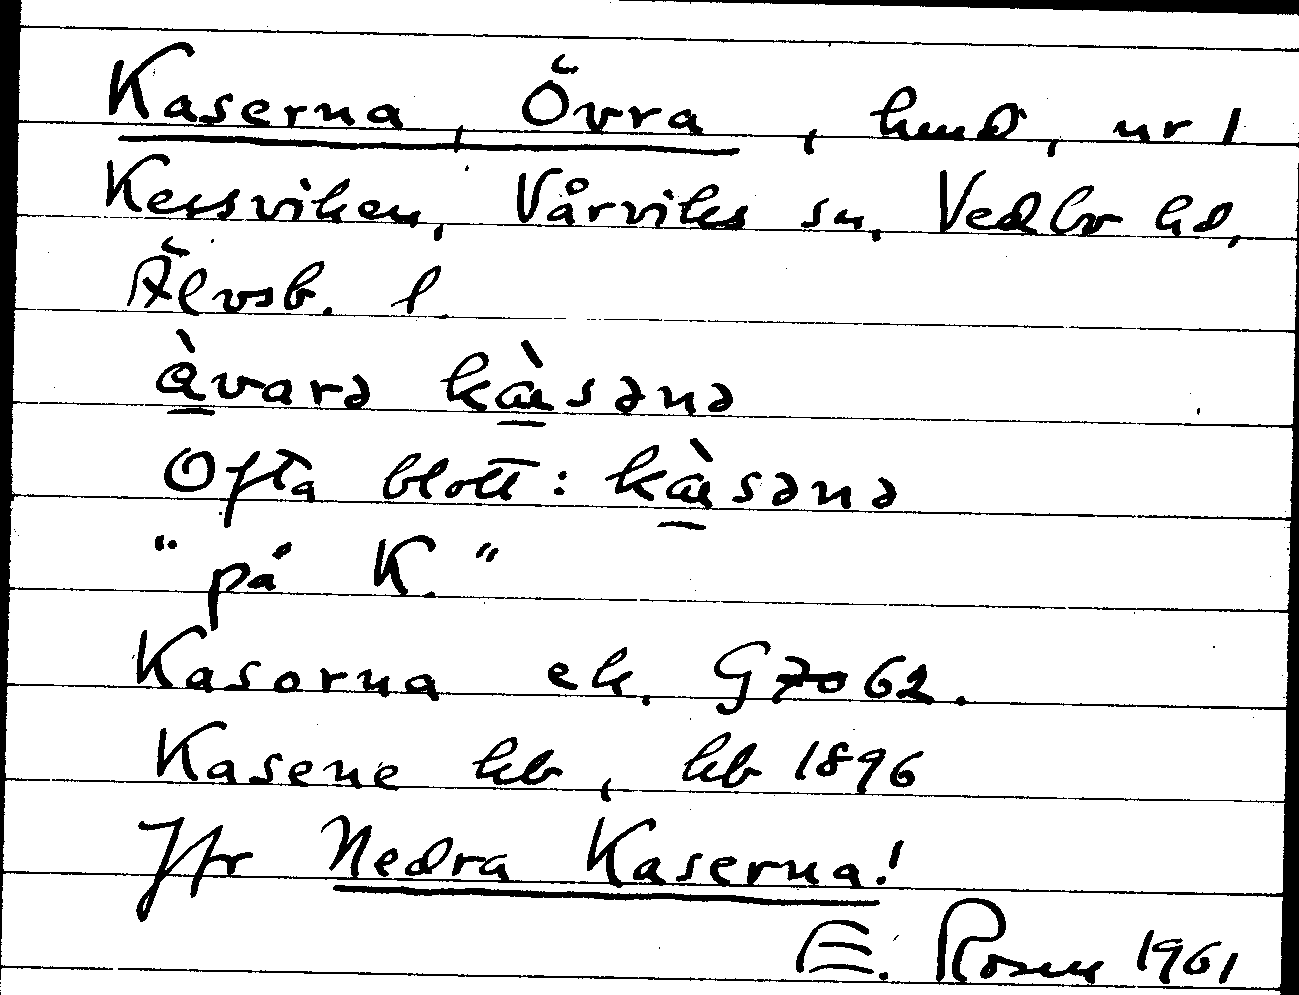 Kaserna, Övra, hmd, nr 1
Kersviken, Vårviks sn, Vedbo hd,
Älvsb. l.
àvarə kàsənə
Ofta blott: kàsənə
"på K."
Kasorna ek. G 70 62.
Kasene kb, hb 1896
Jfr Nedra Kaserna!
E. Rosen 1961